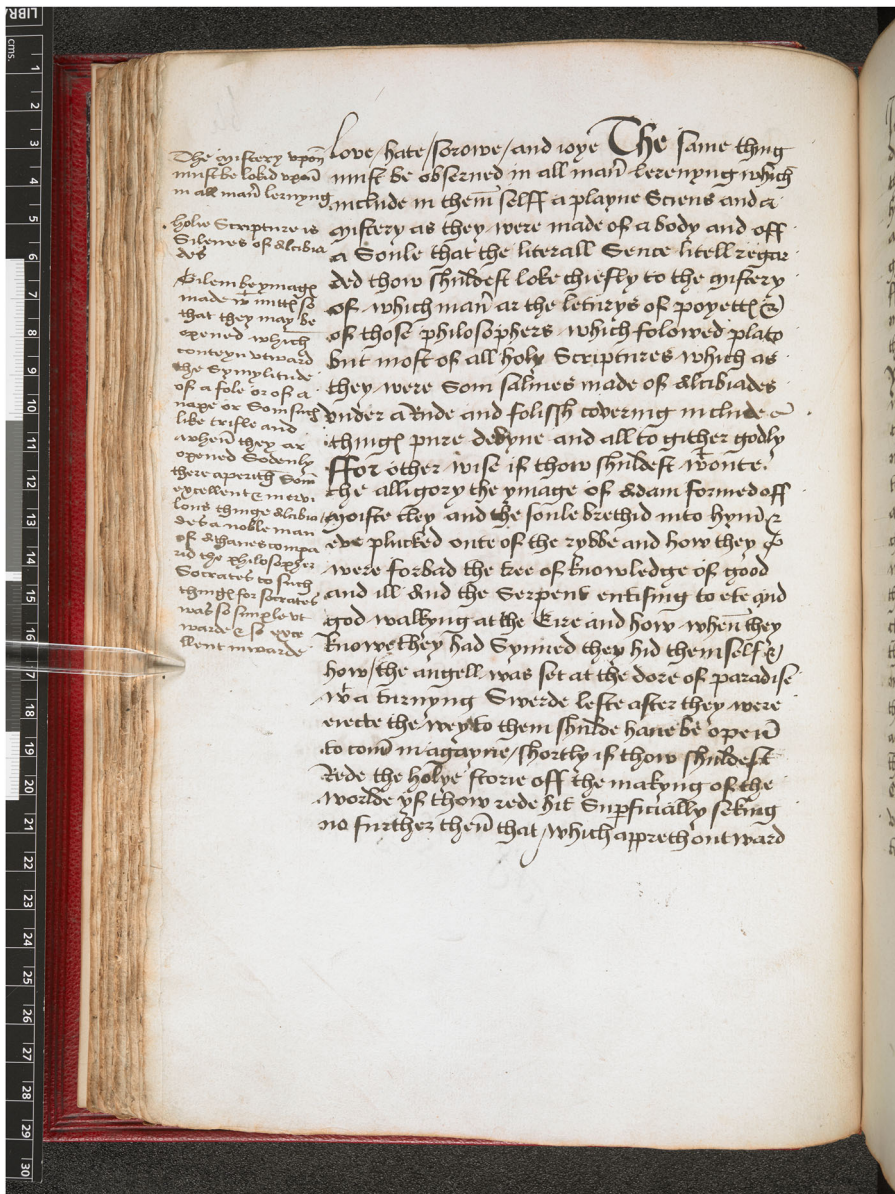 LIBRA
cms.
1
2
3
4
5
6
7
8
9
10
11
12
13
14
15
16
17
18
19
20
21
22
23
24
25
26
27
28
29
30
The mistery vpon
must be lokid vpon
in all man̄ lernyng
holie Scripture is
Silenes of Alcibia
des
Silem be ymagꝭ
made wt so
that they may be
opened which
conteyn vtward
the Symylitude
of a fole or of a
nape or Som such
like trifle and
when̄ they ar
opened Sodenly
there aperith Som̄
excellent & mervi
lous thinge Alcibia
des a noble man
of Athanes compa
rid the philosopher
Socrates to such
thingꝭ for socrates
was so simple vt
warde & so exce
llent inwarde
love / hate / sorowe / and ioye The same thing
must be obserued in all man̄ lerenyng which
include in them̄ selff a playne Sciens and a
mistery as they were made of a body and off
a Soule that the literall Sence litell regar
ded thow shuldest loke chiefly to the mistery
of which man̄ ar the letturys of poyettꝭ &
of those philosophers which folowed plato
but most of all holy Scriptures which as
they were Som made of Alcibiades
vnder a Rude and folissh covering include
thingꝭ pure devyne and all to gither godly
ffor other wise if thow shuldest wtoute
the alligory the ymage of Adam formed off
moiste cley and the soule brethid into hym̄ &
eve plucked oute of the rybbe and how they
were forbad the tree of knowledge of good
and ill And the Serpent entising to ete and
god walkyng at the Eire and how when̄ they
knowe they had Synned they hid them self &
how / the angell was set at the dore of paradise
wt a turnyng Swerde leste after they were
eiecte the wey to them shulde haue be open̄
to com̄ in agayne / shortly if thow shuldest
Rede the holye storie off the makyng of the
worlde yf thow rede hit Suꝑficially seking
no further then̄ that / which apprethoutward